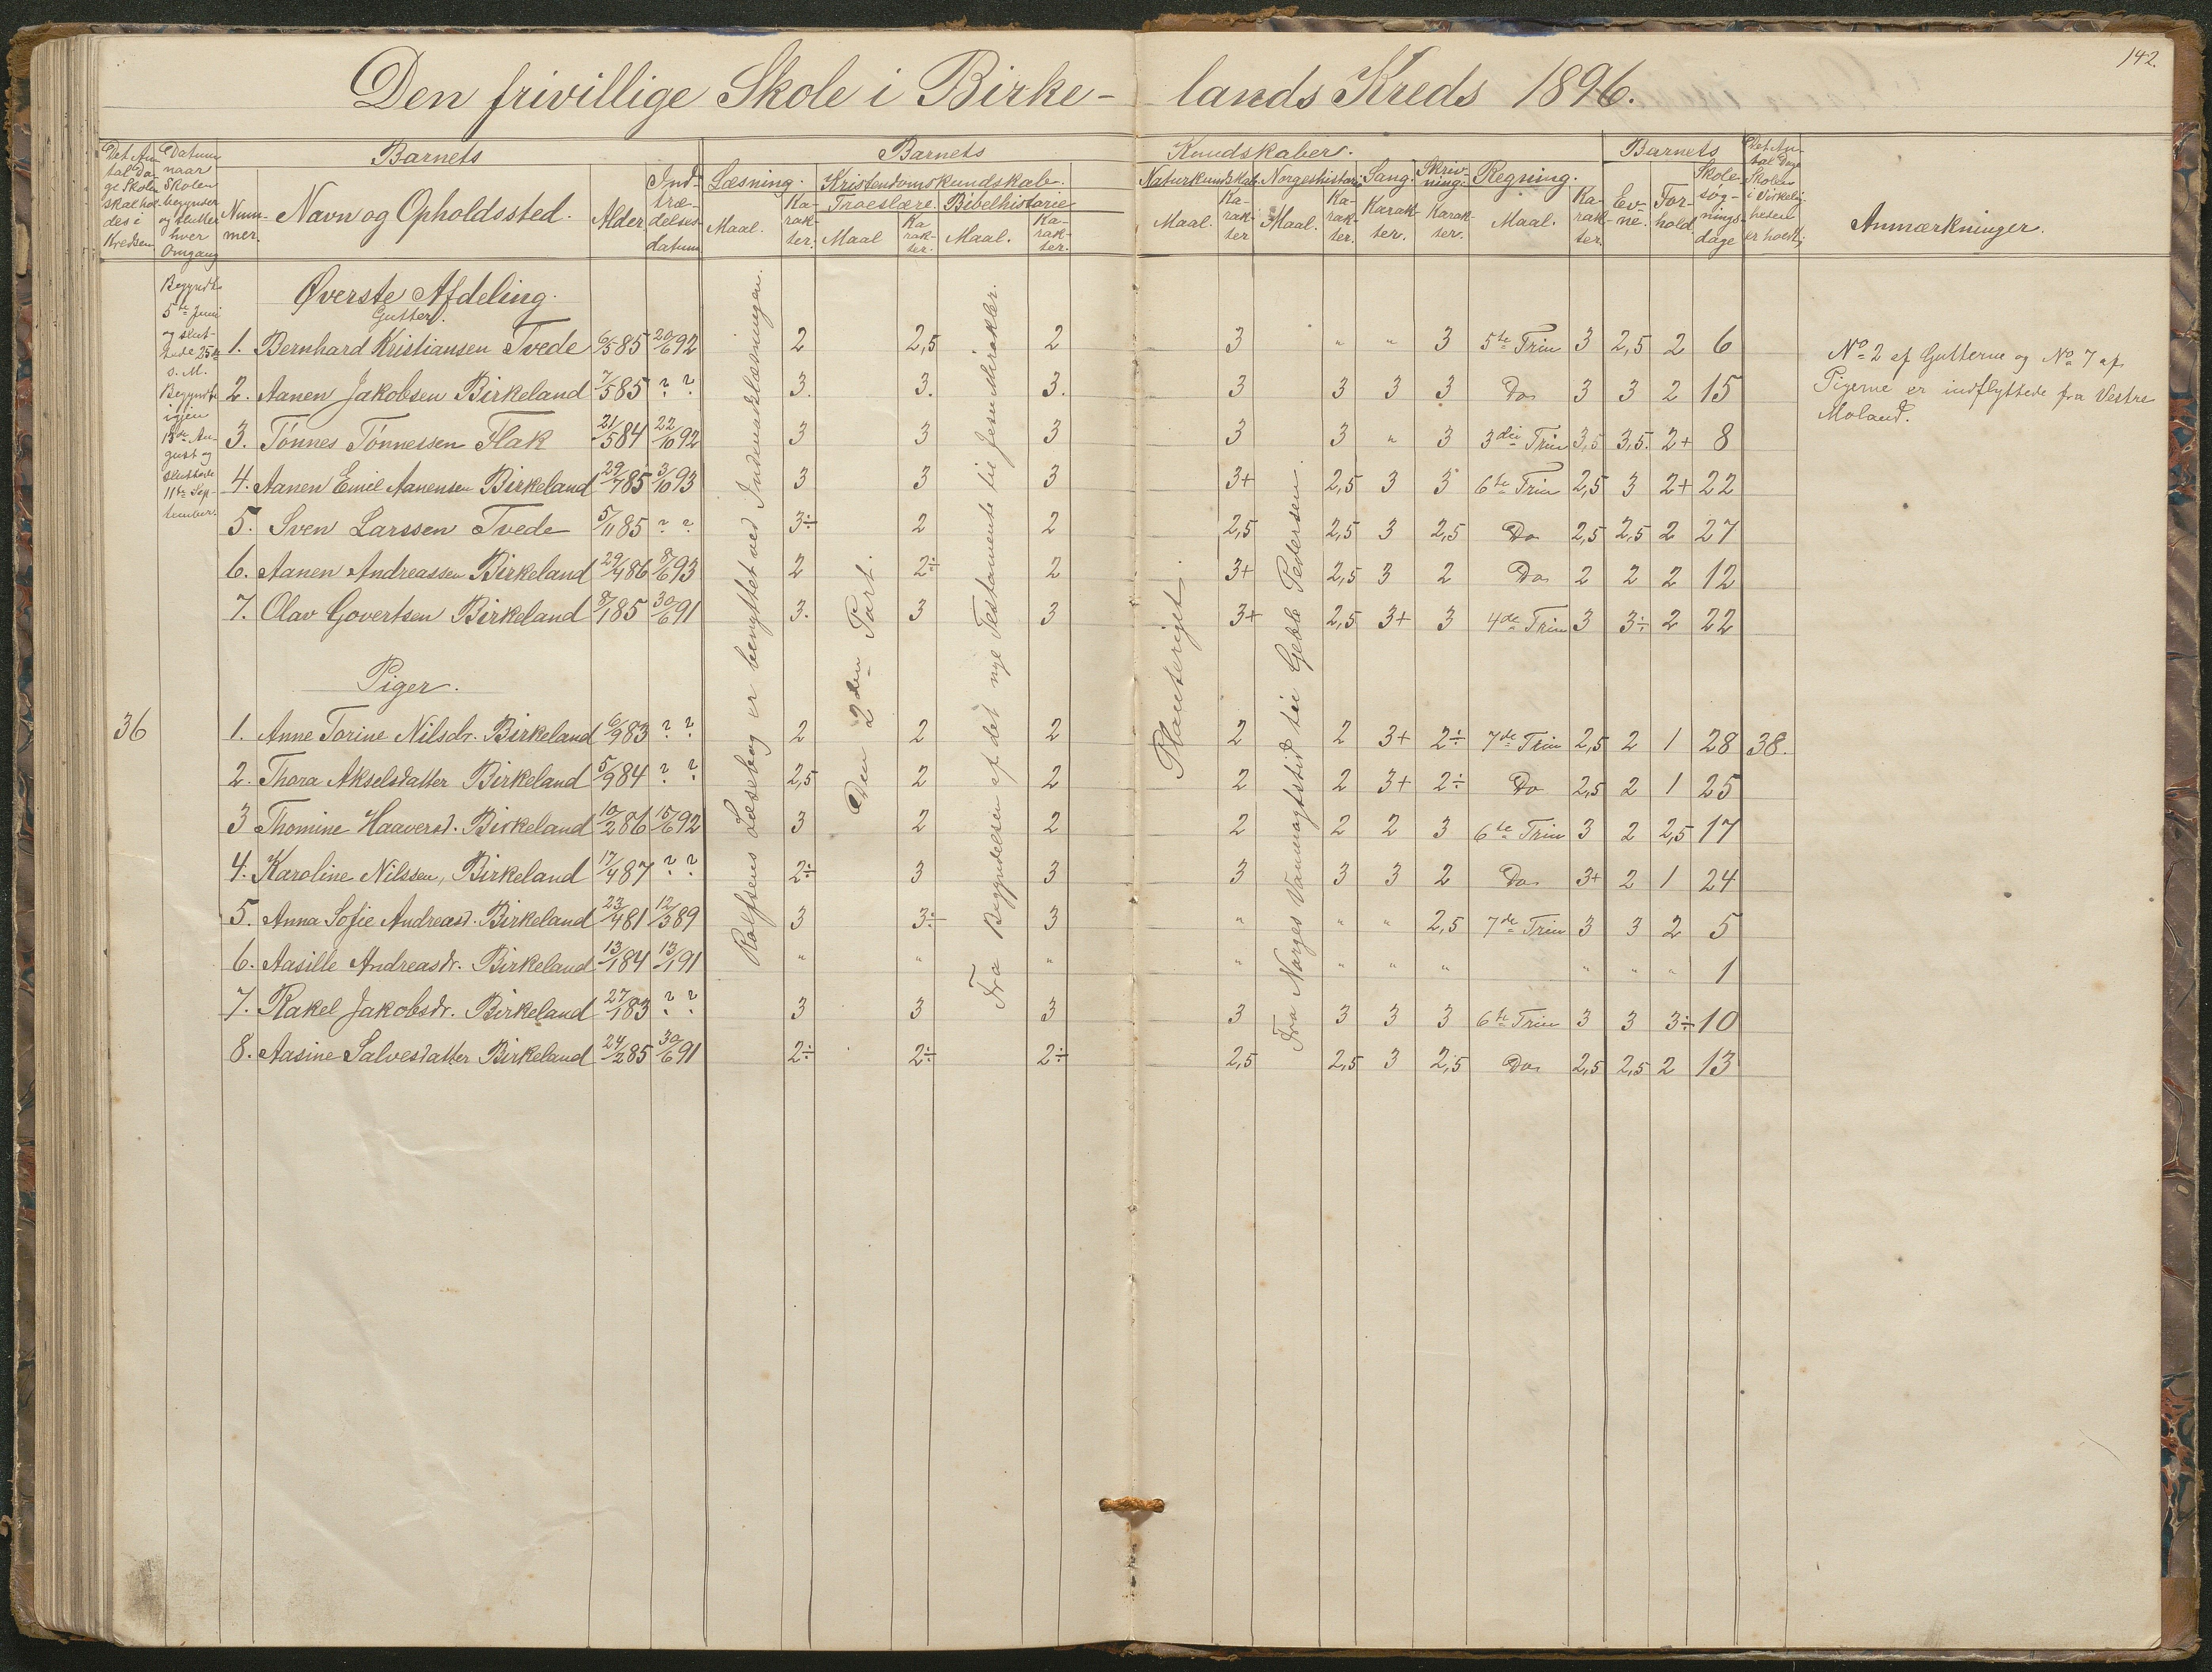 142.
Den frivillige Skole i Birke- lands Kreds 1896.
Det An- tal Da- ge Skolen skal hol- des i Kredsen
Datum naar Skolen begynder og slutter hver Omgang
Barnets
Num- mer.
Navn og Opholdssted.
Alder
Ind- træ- delses- datum
Barnets Kundskaber.
Læsning.
Maal.
Ka- rak- ter.
Kristendomskundskab.
Troeslære.
Maal
Ka- rak- ter.
Bibelhistorie
Maal.
Ka- rak- ter.
Naturkundskab.
Maal.
Ka- rak- ter
Norgeshistorie
Maal.
Ka- rak- ter.
Sang.
Karak- ter.
Skriv- ning.
Karak- ter.
Regning.
Maal.
Ka- rak- ter.
Barnets
Ev- ne.
For- hold
Skole- søg- nings- dage
Det An- tal Dage Skolen i Virkelig- heden er holdt
Anmærkninger.
Begyndte
5te Juni
og slut-
tede 25de
s. M.
Begyndte
igjen
13de Au-
gust og
sluttede
11te Sep-
tember.
Øverste Afdeling.
Gutter.
1. Bernhard Kristiansen Tvede 6/5 85 20/6 92 2 2,5 2 3 " " 3 5te Trin 3 2,5 2 6
2. Aanen Jakobsen Birkeland 7/5 85 ? ? 3. 3. 3. 3 3 3 3 Do 3 3 2 15
3. Tønnes Tønnessen Flak 21/5 84 22/10 92 3 3 3 3 3 " 3 3die Trin 3,5 3,5. 2+ 8
4. Aanen Emil Aanensen Birkeland 29/7 85 3/10 93 3 3 3 3+ 2,5 3 3 6te Trin 2,5 3 2+ 22
5. Sven Larssen Tvede 5/11 85 ? ? 3÷ 2 2 2,5 2,5 3 2,5 Do 2,5 2,5 2 27
6. Aanen Andreassen Birkeland 29/4 86 8/6 93 2 2÷ 2 3+ 2,5 3 2 Do 2 2 2 12
7. Olav Govertsen Birkeland 8/1 85 30/6 91 3. 3 3 3+ 2,5 3+ 3 4de Trin 3 3÷ 2 22
Piger.
36
1. Anne Torine Nilsdr. Birkeland 6/9 83 ? ? 2 2 2 2 2 3+ 2÷ 7de Trin 2,5 2 1 28 38.
2. Thora Akselsdatter Birkeland 5/9 84 ? ? 2,5 2 2 2 2 3+ 2÷ Do 2,5 2 1 25
3 Thomine Haaversd. Birkeland 10/2 86 15/6 92 3 2 2 2 2 2 3 6te Trin 3 2 2,5 17
4. Karoline Nilssen, Birkeland 17/4 87 ? ? 2÷ 3 3 3 3 3 2 Do 3+ 2 1 24
5. Anna Sofie Andreasd. Birkeland 23/4 81 12/3 89 3 3÷ 3 " " " 2,5 7de Trin 3 3 2 5
6. Aasille Andreasdr. Birkeland 13/1 84 13/1 91 " " " " " " " " " " 1
7. Rakel Jakobsdr. Birkeland 27/1 83 ? ? 3 3 3 3 3 3 3 6te Trin 3 3 3÷ 10
8. Aasine Salvesdatter Birkeland 24/2 85 30/6 91 2÷ 2÷ 2÷ 2,5 2,5 3 2,5 Do 2,5 2,5 2 13
Rolfsens Læsebog er benyttet ved Indenadslæsningen.
Den 2den Part.
Fra Begyndelsen af det nye Testamente til Jesu Mirakler.
Planteriget.
Fra Norges Vanmagtstid til Geble Pedersen.
No 2 af Gutterne og No 7 af
Pigerne er indflyttede fra Vestre
Moland.